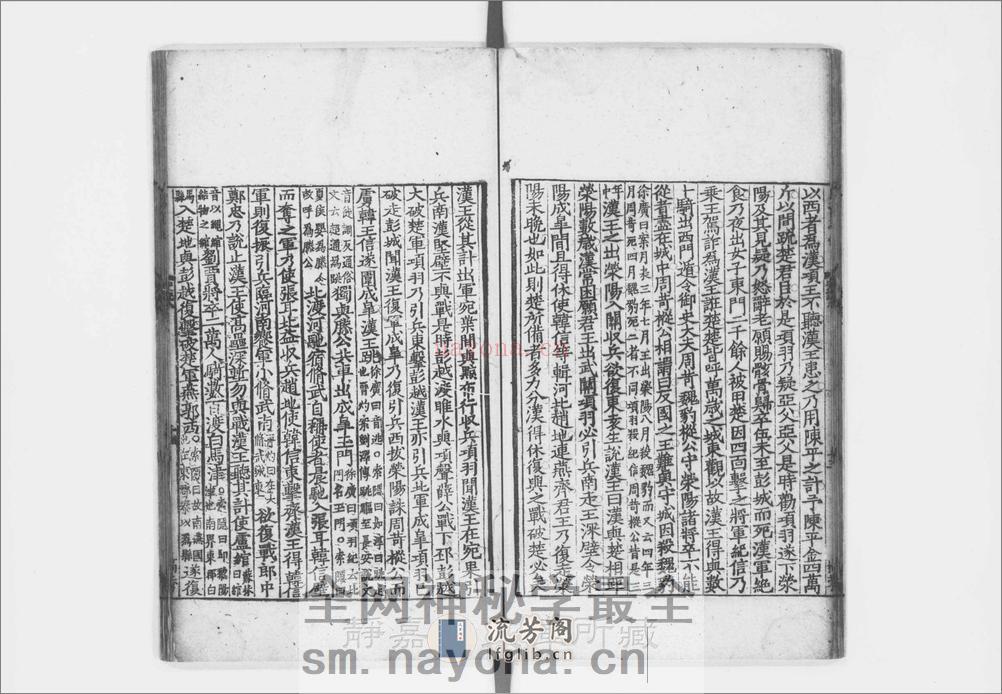 以西者爲漢項王不聽漢王患之乃用陳平之計予陳平金四萬
斤以間疏楚君臣於是項羽乃疑亞父亞父是時勸項羽遂下滎
陽及其見疑乃怒辭老願賜骸骨歸卒伍未至彭城而死漢軍絶
食乃夜出女子東門二千餘人被甲楚因四面擊之將軍紀信乃
乗王駕詐爲漢王誑楚楚皆呼萬歲之城東觀以故漢王得與數
十騎出西門遁令御史大夫周苛魏豹樅公守滎陽諸將卒不能
從者盡在城中周苛樅公相謂曰反國之王難與守城因殺魏豹
徐廣曰案月表三年七月王出滎陽八月殺魏豹而又云四年三
月周苛死四月魏豹死二者不同項羽殺紀信周苛樅公皆是三
年中
漢王之出滎陽入關收兵欲復東袁生說漢王曰漢與楚相距
滎陽數歲漢常困願君王出武關項羽必引兵南走王深壁令滎
陽成皐間且得休使韓信等輯河北趙地連燕齊君王乃復走滎
陽未晚也如此則楚所備者多力分漢得休復與之戰破楚必矣
漢王從其計出軍宛葉間與黥布行收兵項羽聞漢王在宛果引
兵南漢王堅壁不與戰是時彭越渡睢水與項聲薛公戰下邳彭越
大破楚軍項羽乃引兵東擊彭越漢王亦引兵北軍成皐項羽已
破走彭城聞漢王復軍成皐乃復引兵西拔滎陽誅周苛樅公而
虜韓王信遂圍成皐漢王跳
獨與滕公共車出成皐玉門
夏侯嬰爲滕令
故呼爲滕公
北渡河馳宿脩武自稱使者晨馳入張耳韓信壁
而奪之軍乃使張耳北益收兵趙地使韓信東擊齊漢王得韓信
軍則復振引兵臨河南饗軍小脩武南
欲復戰郎中
鄭忠乃說止漢王使高壘深塹勿與戰漢王聽其計使盧綰
劉賈將卒二萬人騎數百渡白馬津
入楚地與彭越復擊破楚軍燕郭西
遂復
nayona.cn
全网神秘学最全
静嘉
所藏
流芳阁
lfglib.cn
sm.nayona.cn